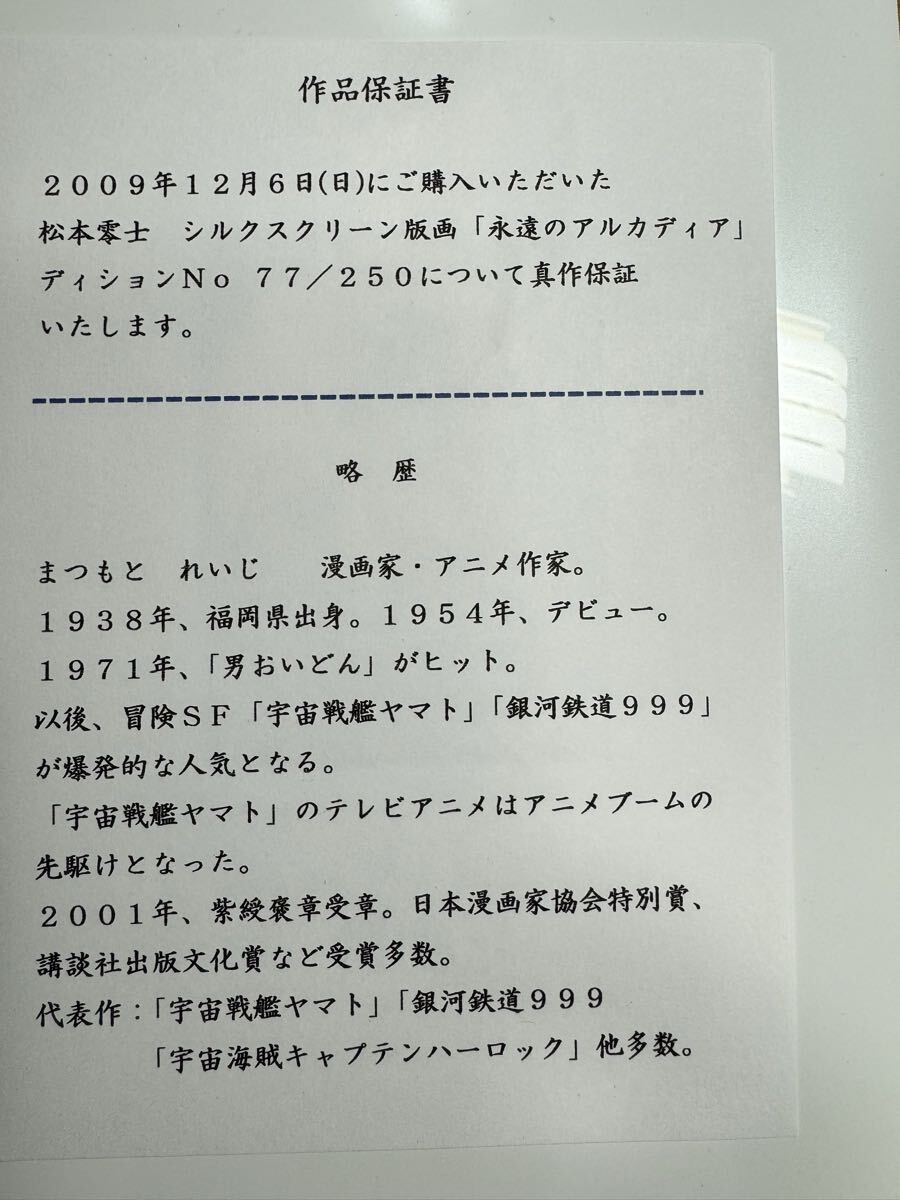 作品保証書
２００９年１２月６日(日)にご購入いただいた
松本零士　シルクスクリーン版画「永遠のアルカディア」
ディションＮｏ　７７／２５０について真作保証
いたします。
略　歴
まつもと　れいじ　　漫画家・アニメ作家。
１９３８年、福岡県出身。１９５４年、デビュー。
１９７１年、「男おいどん」がヒット。
以後、冒険ＳＦ「宇宙戦艦ヤマト」「銀河鉄道９９９」
が爆発的な人気となる。
「宇宙戦艦ヤマト」のテレビアニメはアニメブームの
先駆けとなった。
２００１年、紫綬褒章受章。日本漫画家協会特別賞、
講談社出版文化賞など受賞多数。
代表作：「宇宙戦艦ヤマト」「銀河鉄道９９９
「宇宙海賊キャプテンハーロック」他多数。